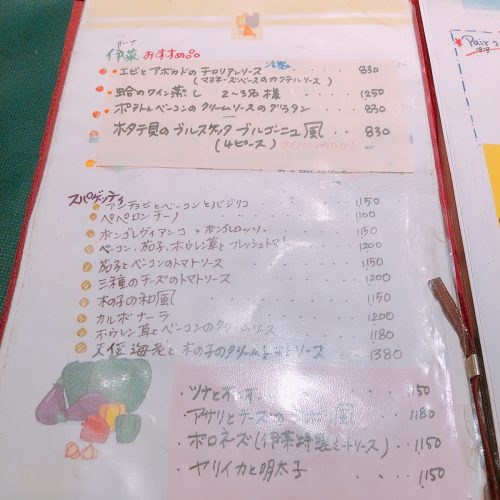 イーナ
伊菜 おすすめ品
エビとアボカドのチロリアンソース 830
(マヨネーズベースのカクテルソース)
蛤のワイン蒸し 2〜3名様 1250
ポテトとベーコンのクリームソースのグラタン 830
ホタテ貝のブルスケッタ ブルゴーニュ風 830
(4ピース)
スパゲッティ
アンチョビとベーコンとバジリコ 1,150
ペペロンチーノ 1,100
ボンゴレヴィアンコ ボンゴレロッソ 1,150
ベーコン、茄子、ホウレン草とフレッシュトマト 1200
茄子とベーコンのトマトソース 1,150
三種のチーズのトマトソース 1200
木の子の和風 1,150
カルボナーラ 1200
ホウレン草とベーコンのクリームソース 1,180
天使海老と木の子のクリーム ソース 1380
・ツナと 1,150
・アサリとチーズ 風 1,180
・ボロネーズ(伊菜特製ミートソース) 1,150
・ヤリイカと明太子 1,150
Pair